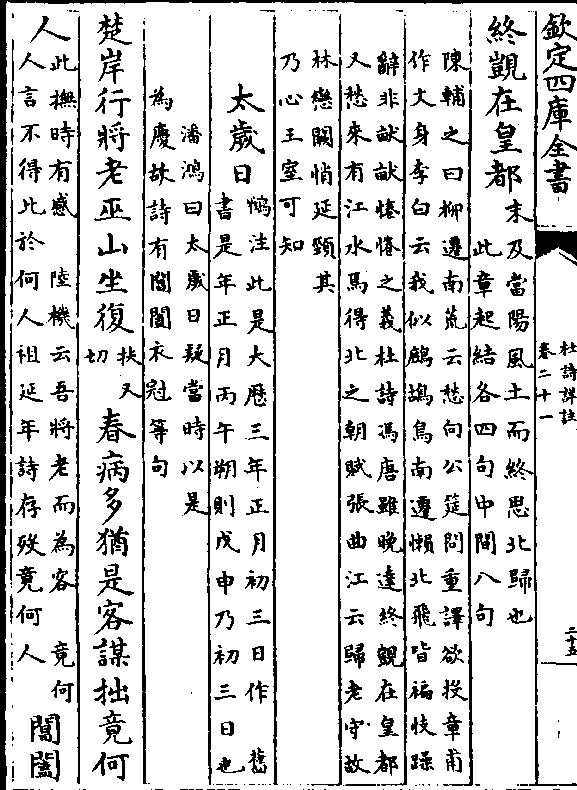 欽定四庫全書
杜詩詳註
卷二十一
二十五
終覬在皇都
末及當陽風土而終思北歸也
此章起結各四句中間八句
陳輔之曰柳遷南荒云愁向公筵問重譯欲投章甫
作文身李白云我似鷓鴣鳥南遷懶北飛皆褊忮躁
辭非畎畝惓惓之義杜詩馮唐雖晚達終覬在皇都
又愁來有江水焉得北之朝賦張曲江云歸老守故
林戀闕悄延頸其
乃心王室可知
太歲日
鶴注此是大歷三年正月初三日作 舊
書是年正月丙午朔則戊申乃初三日也
潘鴻曰太歲日疑當時以是
為慶故詩有閶闔衣冠等句
楚岸行將老巫山坐復
扶又
切
春病多猶是客謀拙竟何
人
此撫時有感 陸機云吾將老而為客 竟何
人言不得比於何人祖延年詩存歿竟何人
閶闔